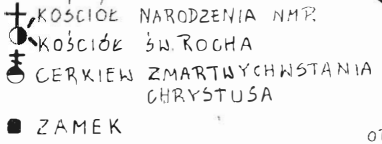 KOŚCIÓŁ NARODZENIA NMP.
KOŚCIÓŁ ŚW. ROCHA
CERKIEW ZMARTWYCHWSTANIA
CHRYSTUSA
ZAMEK